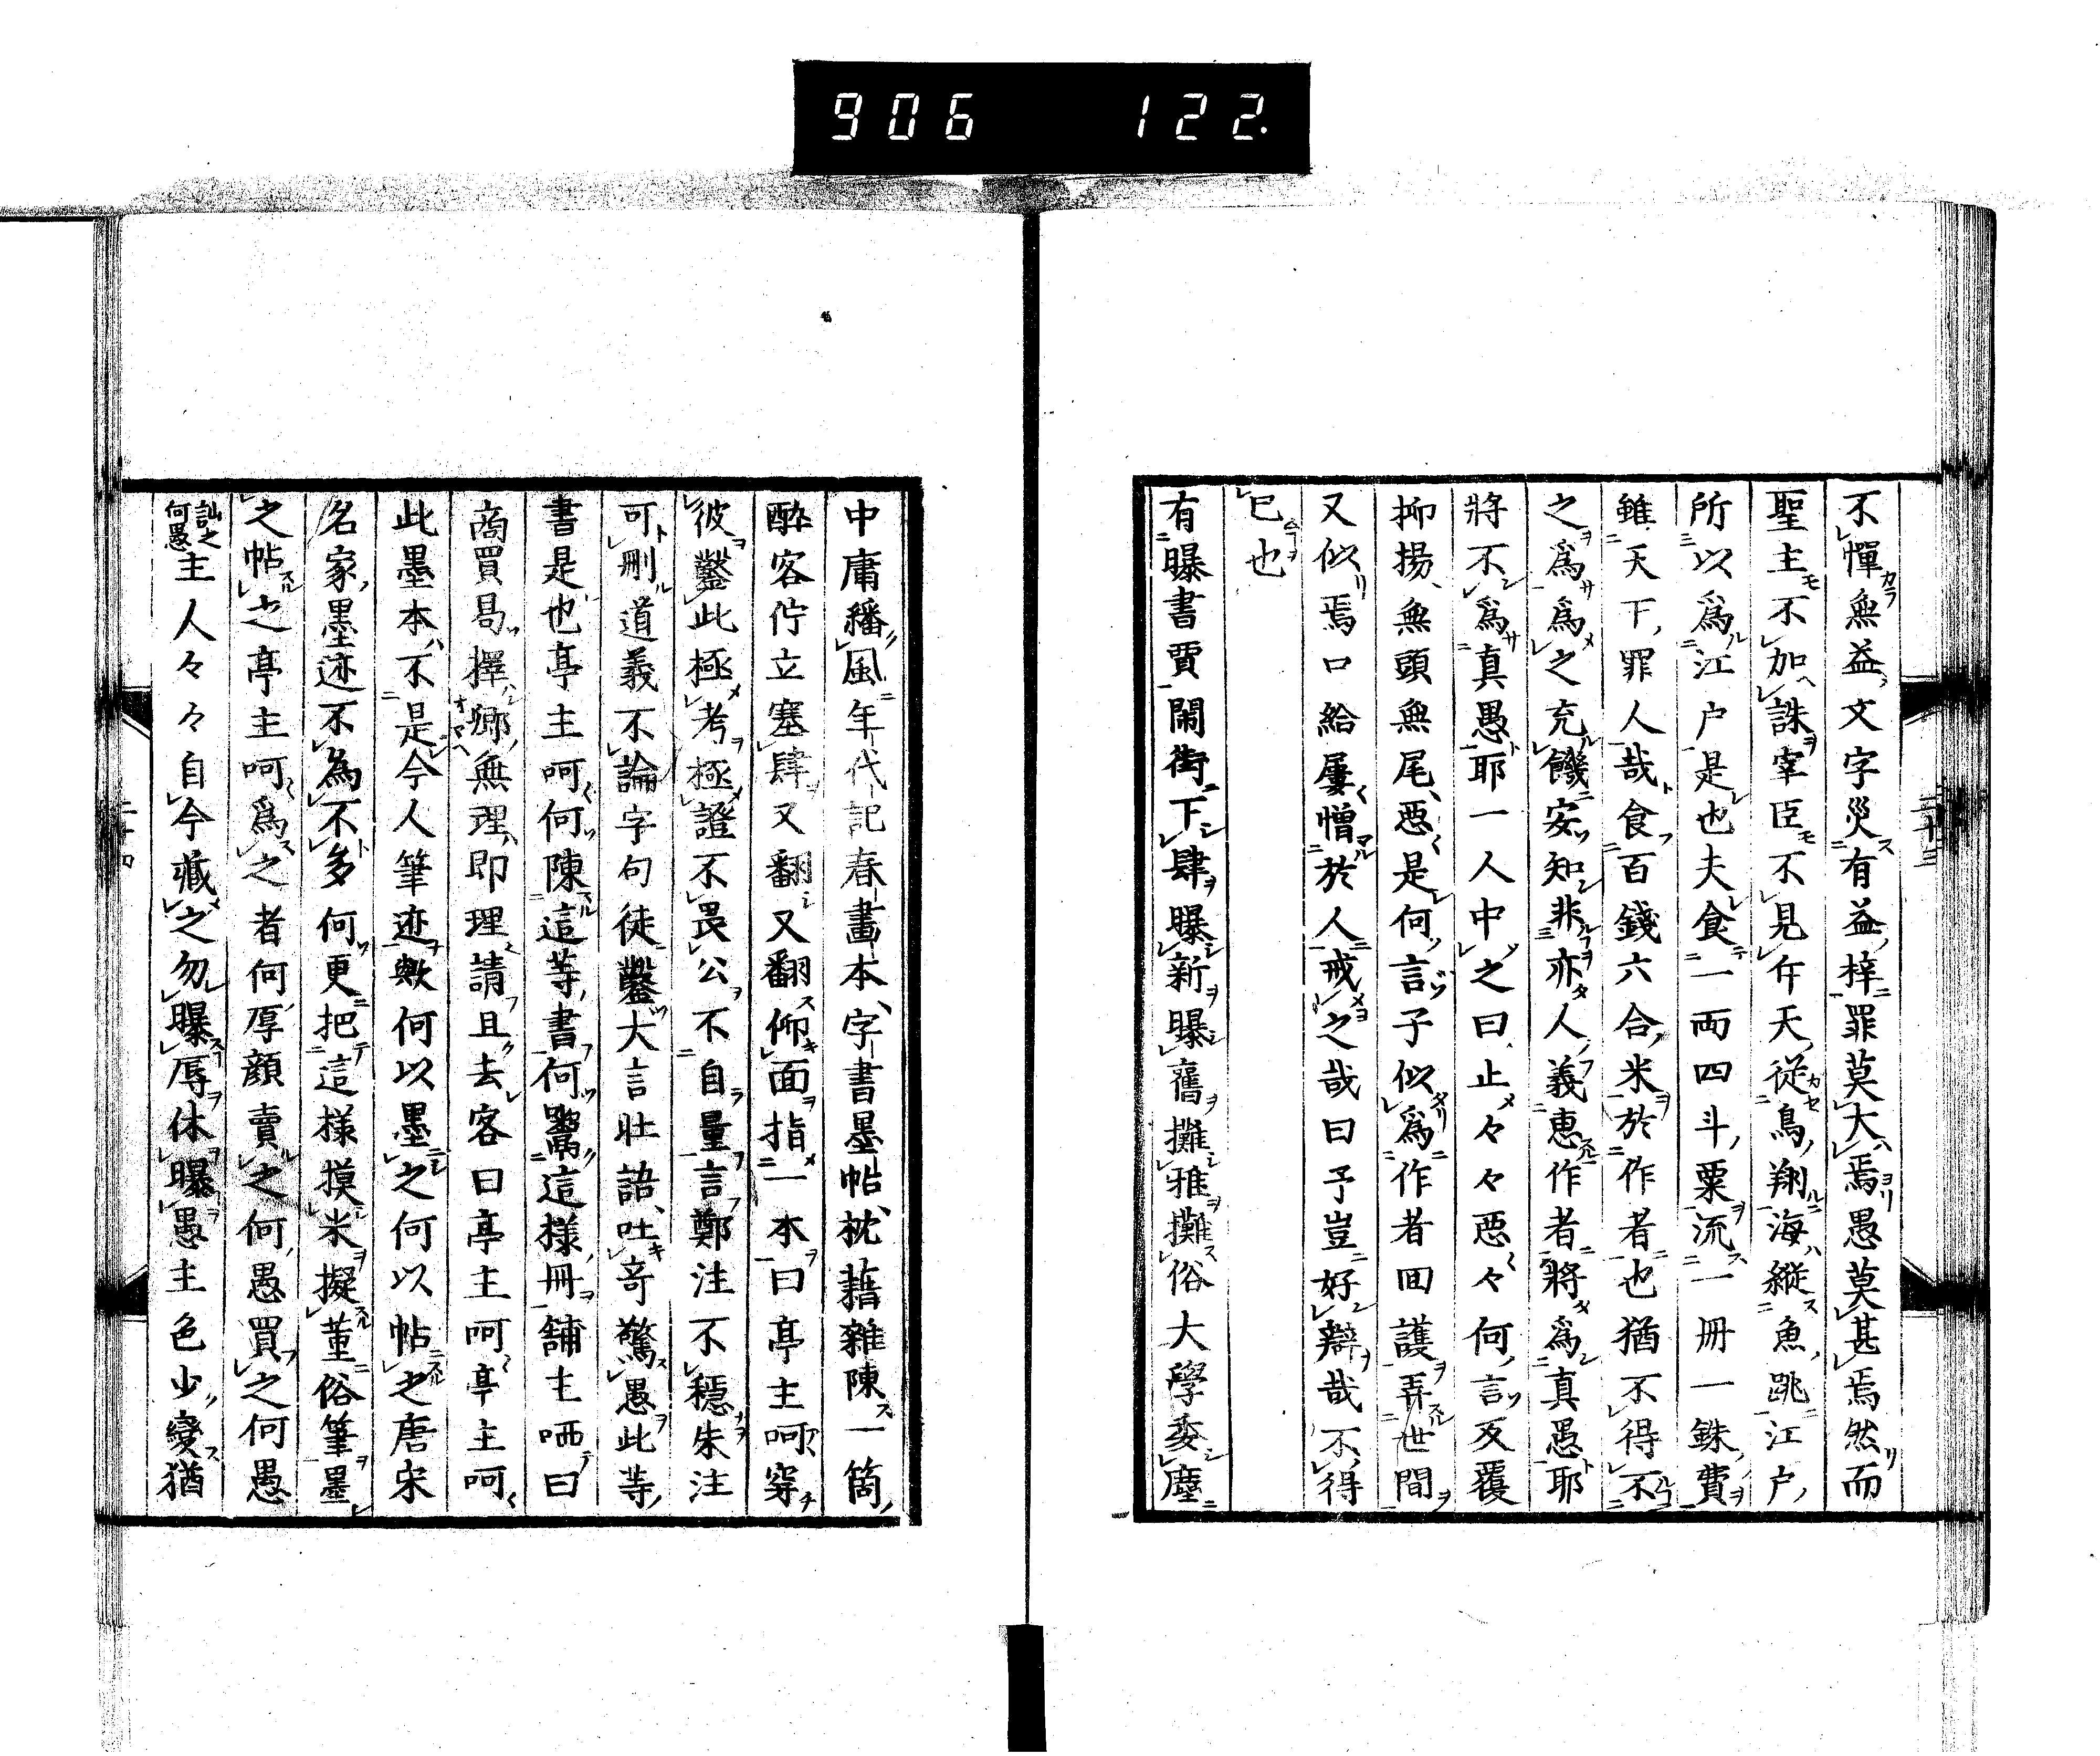 906 122.
不憚無益文字災有益梓罪莫大焉愚莫甚焉然而
聖主不加誅宰臣不見仵天從鳥翔海縱魚跳江戶
所以為江戶是也夫食一両四斗粟流一冊一銖費
雖天下罪人哉食百錢六合米於作者也猶不得不
之為為之充饑安知非亦人義惠作者將為真愚耶
將不為真愚耶一人中之曰止々々惡々何言反覆
抑揚無頭無尾惡是何言子似為作者回護弄世間
又似焉口給屢憎於人戒之哉曰予豈好辯哉不得
已也
有曝書賈鬧街下肆曝新曝舊攤雅攤俗大學委塵
中庸繙風年代記春畫本字書墨帖枕藉雜陳一箇
醉客佇立塞肆又翻又翻仰面指一本曰亭主呵穿
彼鑿此極考極證不畏公不自量言鄭注不穩朱注
可刪道義不論字句徒鑿大言壯語吐奇驚愚此等
書是也亭主呵何陳這等書何鬻這樣冊舖主哂曰
商買易擇鄉無理即理請且去客曰亭主呵亭主呵
此墨本不是今人筆迹歟何以墨之何以帖之唐宋
名家墨迹不為不多何更把這樣摸米擬董俗筆墨
之帖之亭主呵為之者何厚顔賣之何愚買之何愚
訕之何愚主人々々自今藏之勿曝辱休曝愚主色少變猶